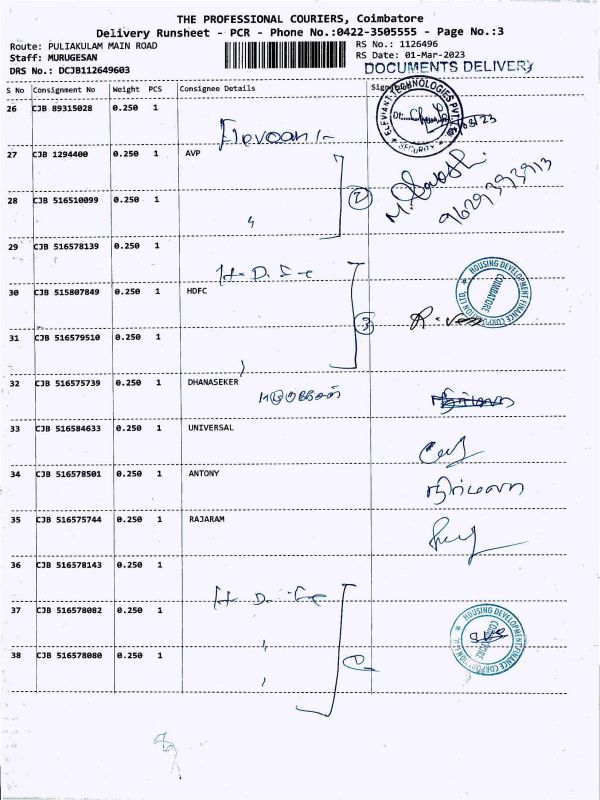 THE PROFESSIONAL COURIERS, Coimbatore
Delivery Runsheet - PCR - Phone No.:0422-3505555 - Page No.:3
Route: PULIAKULAM MAIN ROAD RS No.: 1126496
Staff: MURUGESAN RS Date: 01-Mar-2023
DRS No.: DCJB112649603 DOCUMENTS DELIVERY
S No Consignment No Weight PCS Consignee Details
26 CJB 89315028 0.250 1
ELEVIANT TECHNOLOGIES PVT
SECURITY
27 CJB 1294400 0.250 1 AVP
28 CJB 516510099 0.250 1
9629393913
29 CJB 516578139 1
H D F C
HOUSING DEVELOPMENT FINANCE CORPORATION LTD.
COIMBATORE
30 CJB 515807849 0.250 1 HDFC
31 CJB 516579510 0.250 1
32 CJB 516575739 0.250 1 DHANASEKER
33 CJB 516584633 0.250 1 UNIVERSAL
34 CJB 516578501 0.250 1 ANTONY
நிர்மலா
35 CJB 516575744 0.250 1 RAJARAM
36 CJB 516578143 0.250 1
H D F C
37 CJB 516578082 0.250 1
HOUSING DEVELOPMENT FINANCE CORPORATION LTD.
COIMBATORE
38 CJB 516578080 0.250 1